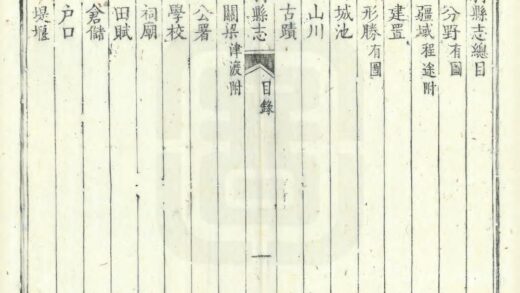 縣志總目
分野有圖
疆域程途附
建置
形勝有圖
城池
山川
古蹟
縣志 目錄 一
關梁津渡附
公署
學校
祠廟
田賦
倉儲
户口
堤堰